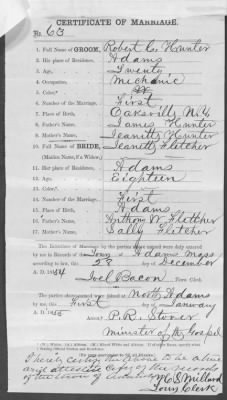 CERTIFICATE OF MARRIAGE.
No. 63
1. Full Name of GROOM, Robert C. Hunter
2. His place of Residence, Adams
3. Age, Twenty
4. Occupation, Mechanic
5. Color,* W
6. Number of the Marriage, First
7. Place of Birth, Oaksville N.Y.
8. Father's Name, James Hunter
9. Mother's Name, Jeanette Hunter
10. Full Name of BRIDE, Jeanette Fletcher
(Maiden Name, if a Widow.)
11. Her place of Residence, Adams
12. Age, Eighteen
13. Color,*
14. Number of the Marriage, First
15. Place of Birth, Adams
16. Father's Name, Anthony W. Fletcher
17. Mother's Name, Sally Fletcher
The Intentions of Marriage by the parties above named were duly entered
by me in Records of the Town of Adams Mass
according to law, this 28 day of December
A. D. 1854
Joel Bacon, Town Clerk.
The parties aforenamed were joined at North Adams
by me, this First day of January
A. D. 1855 Attest P. R. Stover
Minister of the Gospel
I hereby certify the above to be a true
and attested copy of the records
of the Town of
H. S. Millard
Town Clerk